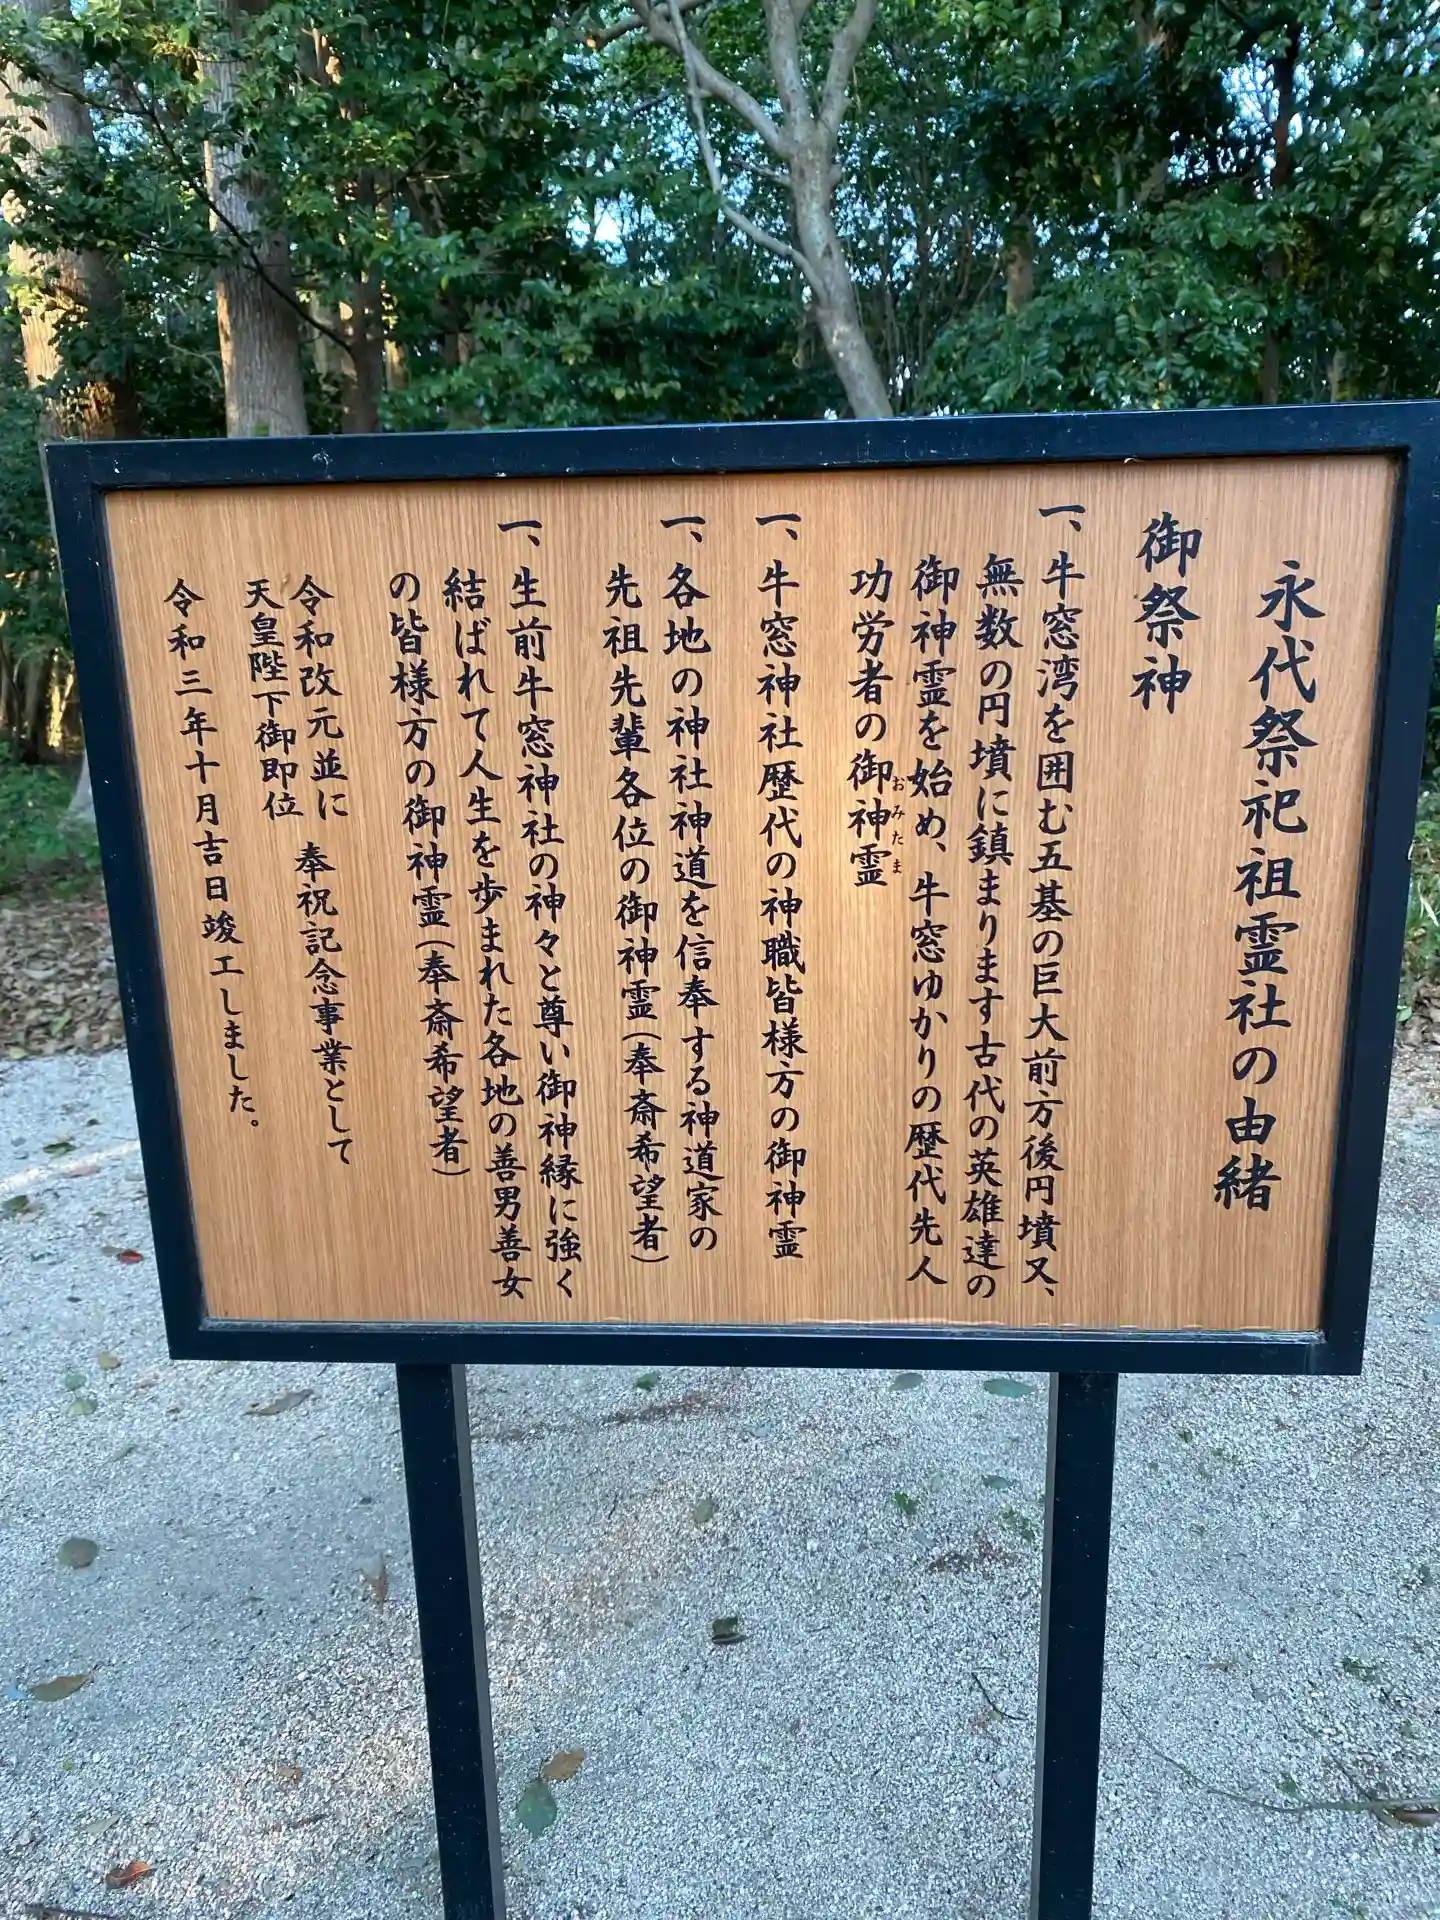 永代祭祀祖霊社の由緒
御祭神
一、牛窓湾を囲む五基の巨大前方後円墳又、
無数の円墳に鎮まります古代の英雄達の
御神霊を始め、牛窓ゆかりの歴代先人
功労者の御神霊
おみたま
一、牛窓神社歴代の神職皆様方の御神霊
一、各地の神社神道を信奉する神道家の
先祖先輩各位の御神霊(奉斎希望者)
一、生前牛窓神社の神々と尊い御神縁に強く
結ばれて人生を歩まれた各地の善男善女
の皆様方の御神霊(奉斎希望者)
令和改元並に
天皇陛下御即位
奉祝記念事業として
令和三年十月吉日竣工しました。